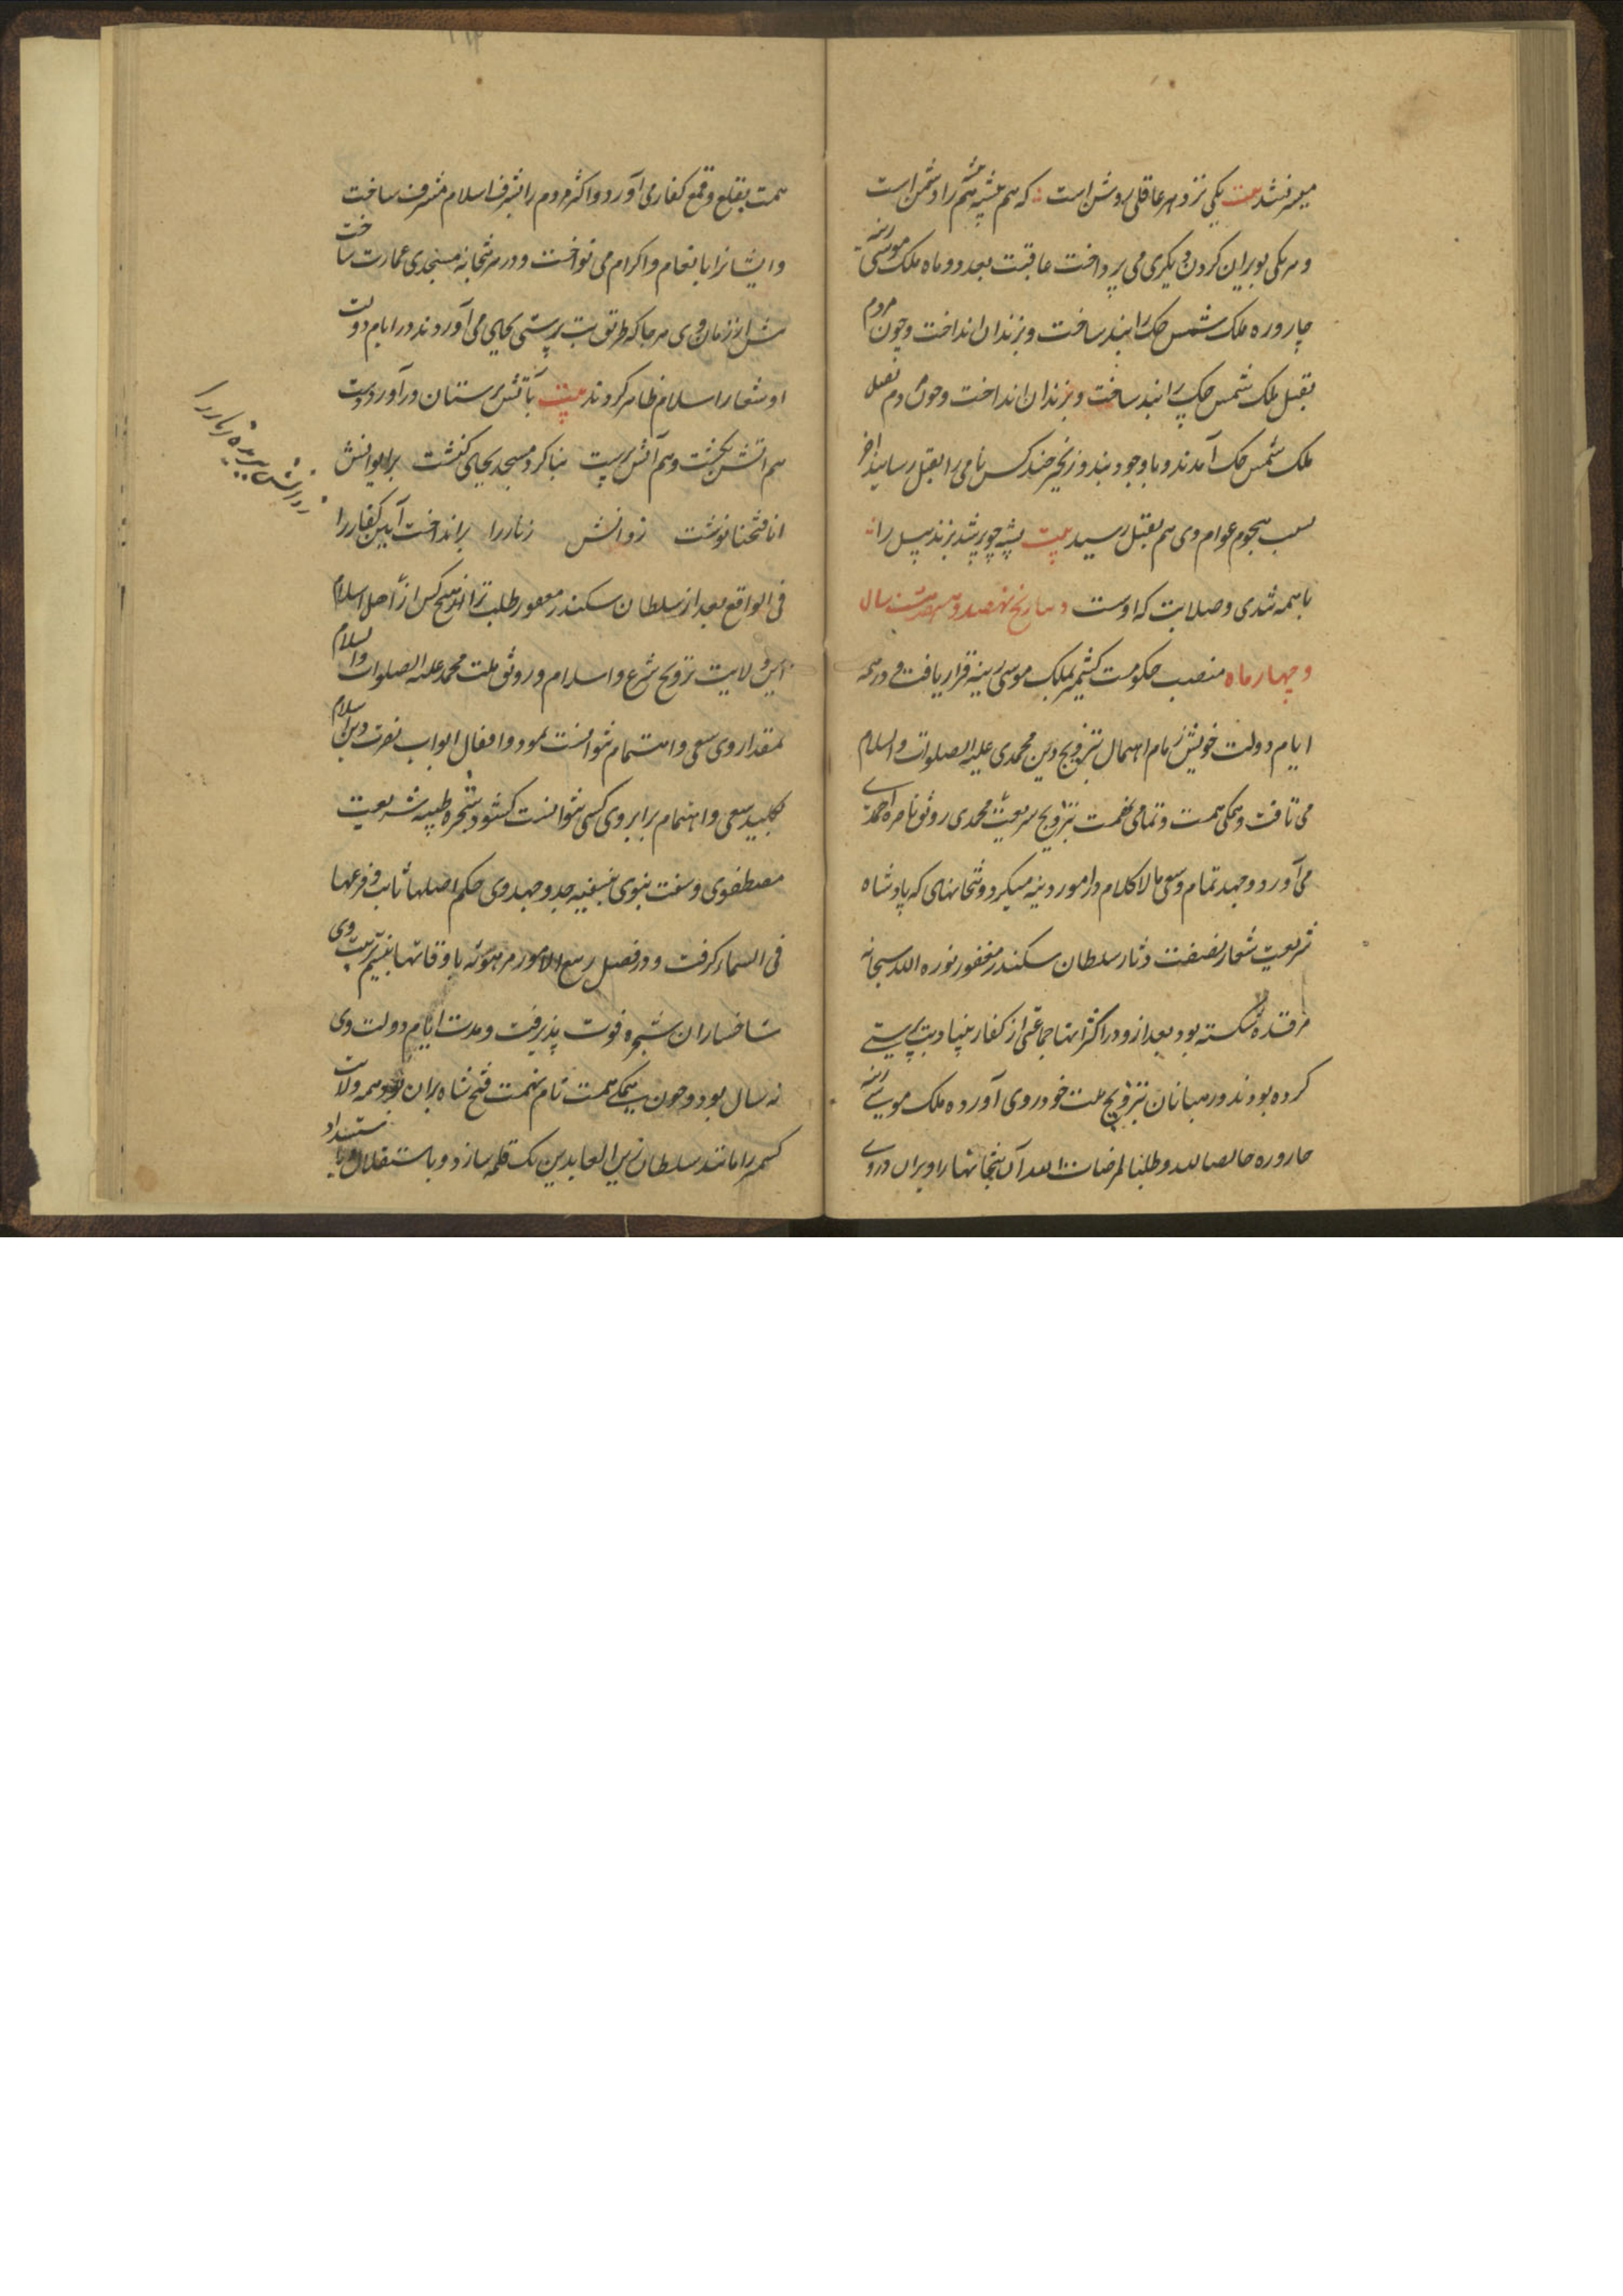 میفرشد بیت یکی نزد هر عاقلی روشن است که هم پیشه هم پیشه را دشمن است
و هر یکی بویران کردن دیگری می پرداخت عاقبت بعد دو ماه ملک موسی رینه
چاروره ملک شمس چک را بند ساخت و بزندان انداخت و چون مردم
بقتل ملک شمس چک را بند ساخت و بزندان انداخت و چون مردم بقتل
ملک شمس چک آمدند و با وجود بند و زنجیر چند کس نامی را بقتل رسانید آخر
بسبب هجوم عوام وی هم بقتل رسید بیت پشه چو پر شد بزند پیل را
با همه تندی و صلابت که اوست و بتاریخ نهصد و سال
و چهار ماه منصب حکومت کشمیر بملک موسی رینه قرار یافت و در همه
ایام دولت خویش زمام اهتمال بترویج دین محمدی علیه الصلوات والسلام
می تافت و همگی همت و تمامی نهمت بترویج شریعت محمدی رونق احمدی
می آورد و جهد تمام و سعی مالاکلام در امور دینیه میکرد و بتخانهای که پادشاه
شریعت شعار نصفت دثار سلطان سکندر مغفور نوره الله سبحانه
مرقده شکسته بود بعد ازو در اکثر آنها جماعتی از کفار بنیاد بت پرستی
کرده بودند و رهبانان بترویج ملت خود روی آورده ملک موسی رینه
چاروره خالصا لله و طلبا لمرضات الله آن بتخانها را ویران و روی
همت بقلع و قمع کفار می آورد و اکثر مردم را بشرف اسلام مشرف ساخت
و ایشانرا بانعام و اکرام می نواخت و در هر بتخانه مسجدی عمارت ساخت
پیش از زمان وی هر جا که طریق بت پرستی بجای می آوردند در ایام دولت
او شعار اسلام ظاهر کردند بیت بآتش پرستان در آورد دست
هم آتش بکشت و هم آتش پرست بنا کرد مسجد بجای کنشت بر ایوانش
انا فتحنا نوشت ز وانش زنار را برانداخت آیین کفار را
فی الواقع بعد از سلطان سکندر مغفور طلب ثراه از هیچ کس از اهل اسلام
این ولایت ترویج شرع و اسلام و رونق ملت محمد علیه الصلوات والسلام
بمقدار وی سعی و اهتمام نتوانست نمود و اقفال ابواب نصرت دین اسلام
بکلید سعی و اهتمام برابر وی کسی نتوانست گشود و شجره طیبه شریعت
مصطفوی و سنت نبوی جد و جهد وی حکم اصلها ثابت و فرعها
فی السماء گرفت و در فصل ربیع الامور مرهونه باوقاتها تربیت وی
شاخساران شجره فوت پذیرفت و مدت ایام دولت وی
نه سال بود و چون همگی همت تام نهمت فتح شاه بران بود همه ولایت
کشمیر را مانند سلطان زین العابدین یک قلمه سازد و باستقلال و با ستبداد